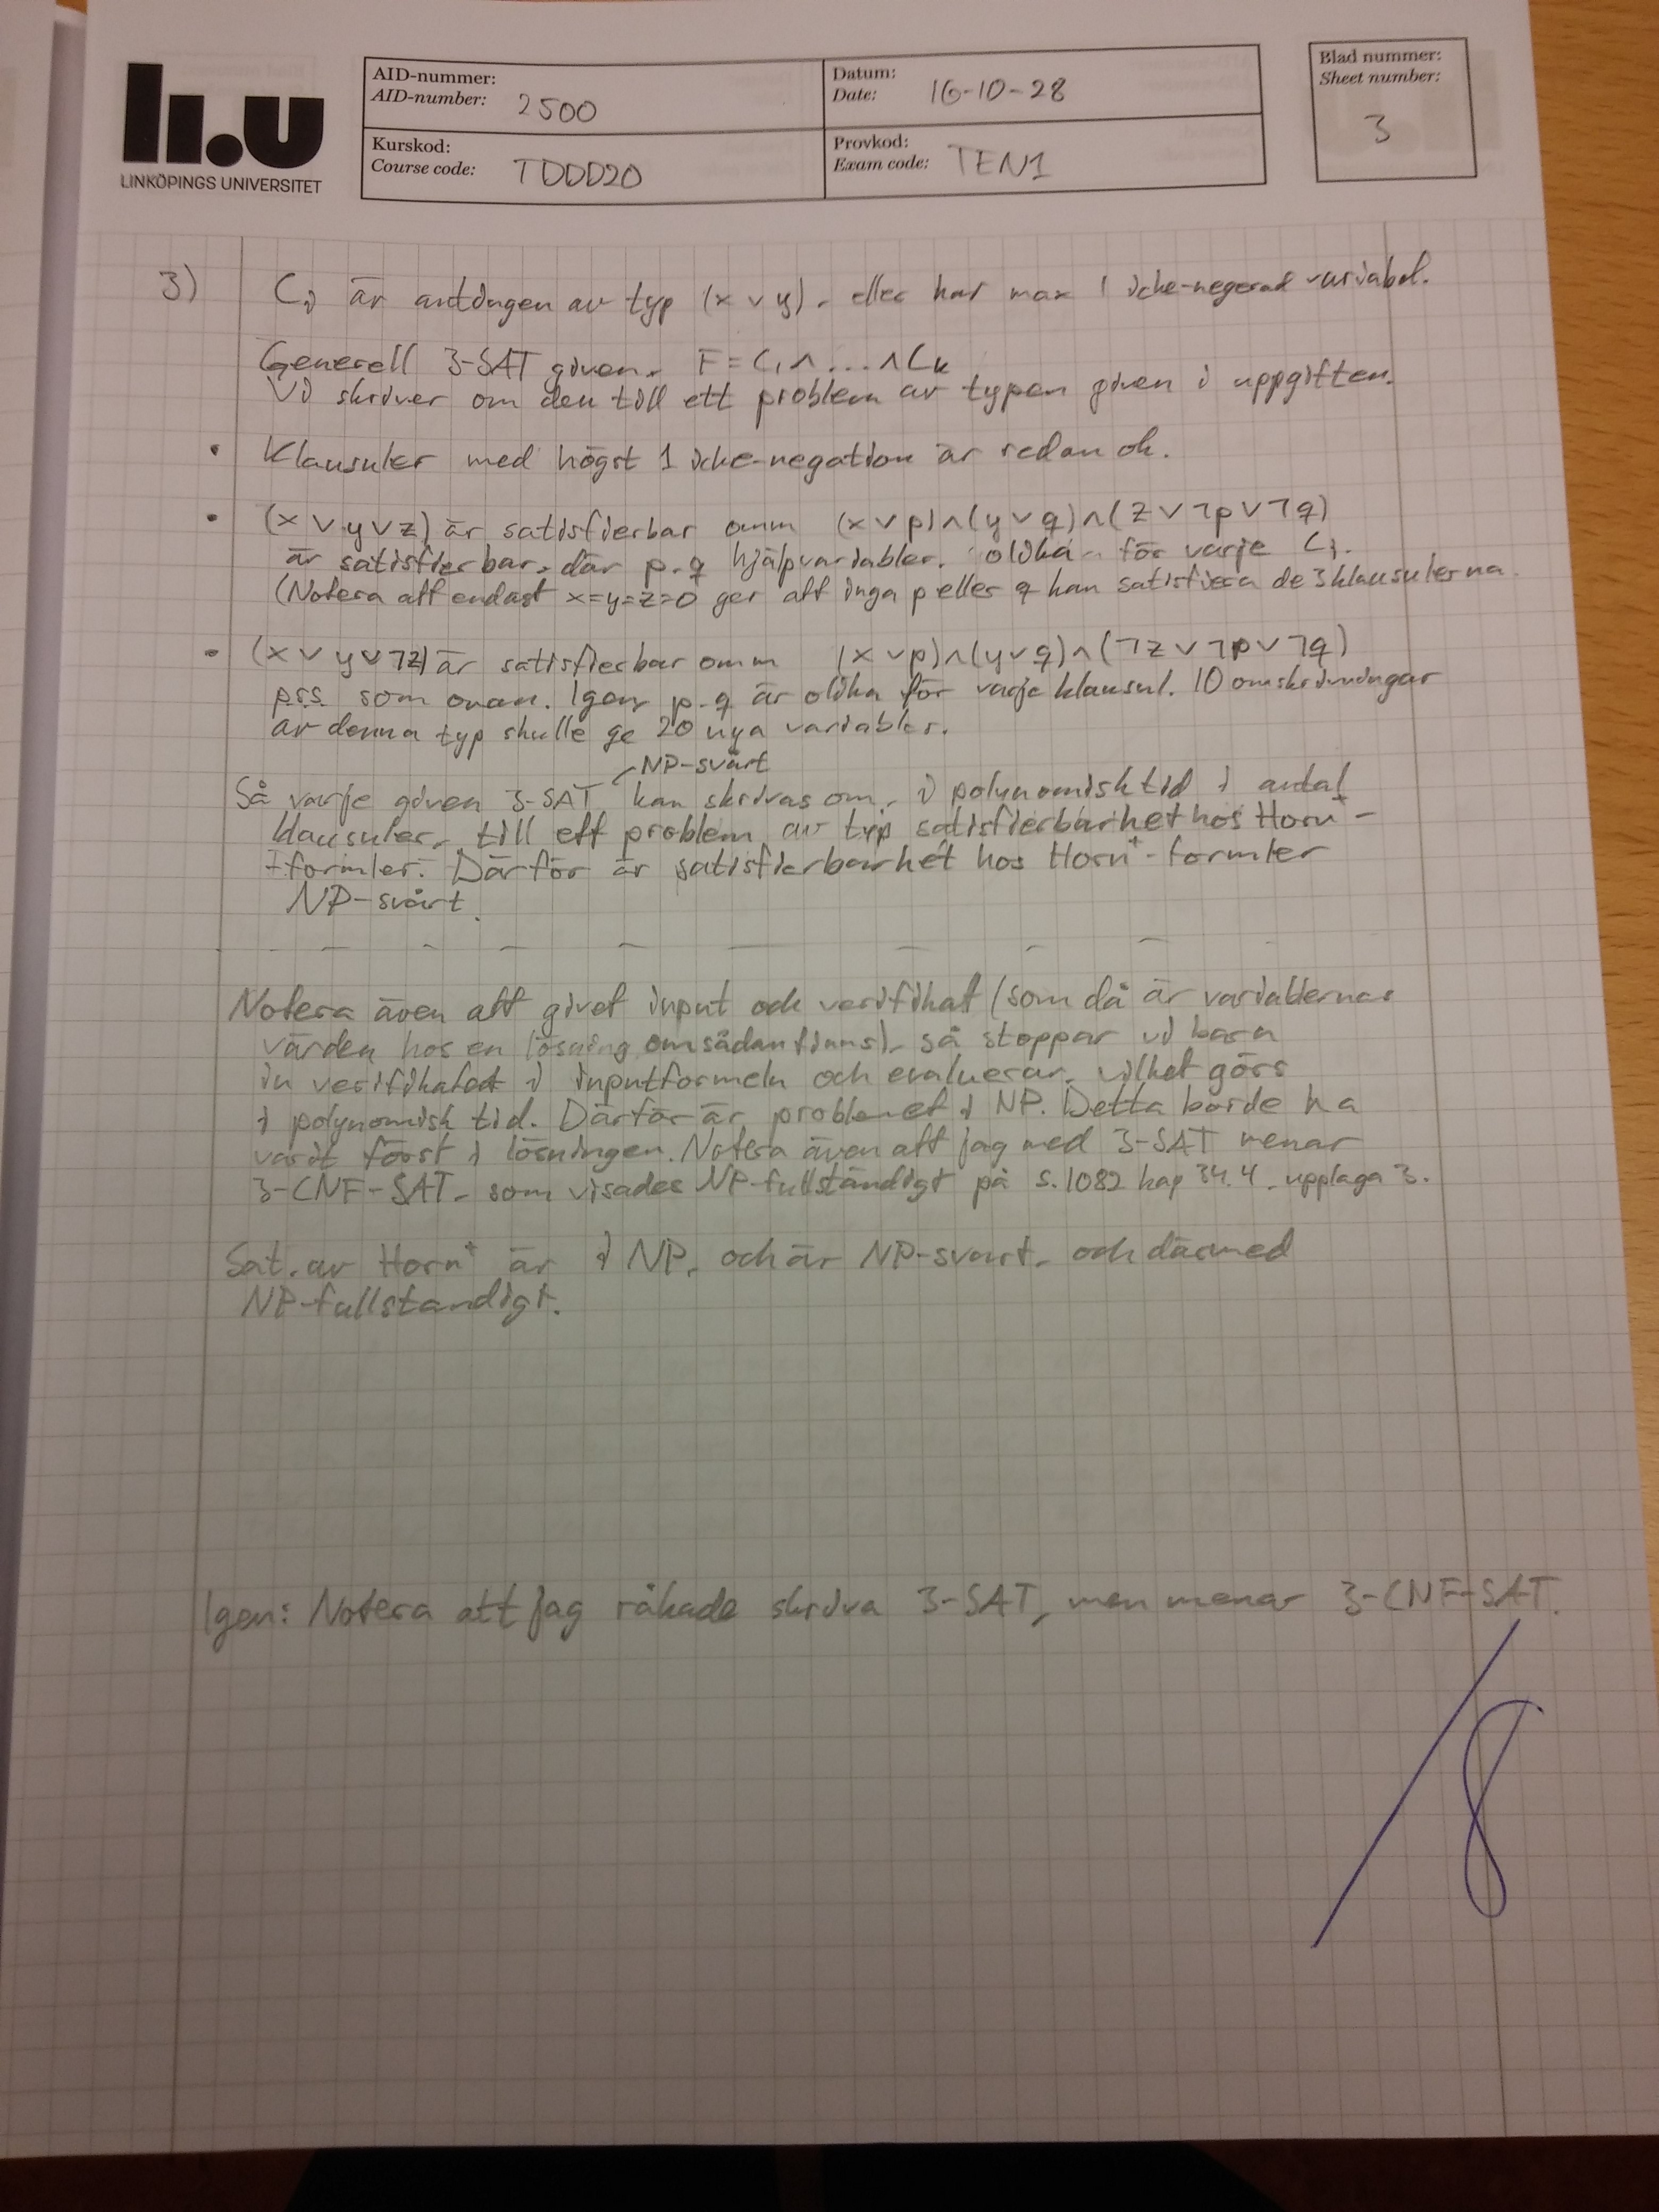 li.u
LINKÖPINGS UNIVERSITET
AID-nummer:
AID-number: 2500
Datum:
Date: 16-10-28
Kurskod:
Course code: TDDD20
Provkod:
Exam code: TEN1
Blad nummer:
Sheet number:
3
3) Ci är antingen av typ (x ∨ y), eller har max 1 icke-negerad variabel.
Generell 3-SAT given, F = C₁ ∧ ... ∧ Ck
Vi skriver om den till ett problem av typen given i uppgiften.
• Klausuler med högst 1 icke-negation är redan ok.
• (x ∨ y ∨ z) är satisfierbar omm (x ∨ p) ∧ (y ∨ q) ∧ (z ∨ ¬p ∨ ¬q)
är satisfierbar, där p, q hjälpvariabler, olika för varje Cj.
(Notera att endast x=y=z=0 ger att inga p eller q kan satisfiera de 3 klausulerna.
• (x ∨ y ∨ ¬z) är satisfierbar omm (x ∨ p) ∧ (y ∨ q) ∧ (¬z ∨ ¬p ∨ ¬q)
pss som ovan. Igen, p, q är olika för varje klausul. 10 omskrivningar
av denna typ skulle ge 20 nya variabler.
NP-svårt
Så varje given 3-SAT kan skrivas om, i polynomisk tid i antal
klausuler, till ett problem av typ satisfierbarhet hos Horn⁺-
formler. Därför är satisfierbarhet hos Horn⁺-formler
NP-svårt.
Notera även att givet input och verifikat (som då är variablernas
värden hos en lösning, om sådan finns), så stoppar vi bara
in verifikatet i inputformeln och evaluerar, vilket görs
i polynomisk tid. Därför är problemet i NP. Detta borde ha
varit först i lösningen. Notera även att jag med 3-SAT menar
3-CNF-SAT, som visades NP-fullständigt på s. 1082 kap 34.4, upplaga 3.
Sat. av Horn⁺ är i NP, och är NP-svårt, och därmed
NP-fullständigt.
Igen: Notera att jag råkade skriva 3-SAT, men menar 3-CNF-SAT.
8